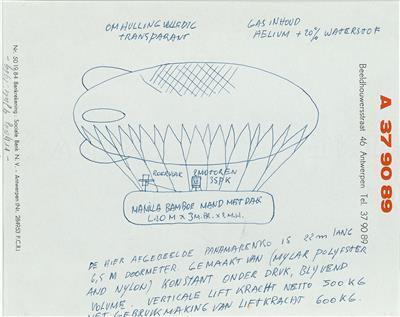 OMHULLING VOLLEDIG
TRANSPARANT
GASINHOUD
HELIUM + 20% WATERSTOF
Nr. 5019 84 Bankrekening: Societé Bank N.V. - Antwerpen
Beeldhouwersstraat 46 Antwerpen Tel. 37 90 89
A 37 90 89
2 MOTOREN
35 PK
MANILA BAMBOE MAND MET DAK
DE HIER AFGEBEELDE PANAMARENKO IS 22m LANG
6,5 M DOORMETER. GEMAAKT VAN (MYLAR POLYESTER
AND NYLON) KONSTANT ONDER DRUK, BLYVEND
VOLUME. VERTICALE LIFT KRACHT NETTO 500 KG
MET GEBRUIKMAKING VAN LIFTKRACHT 600 KG.